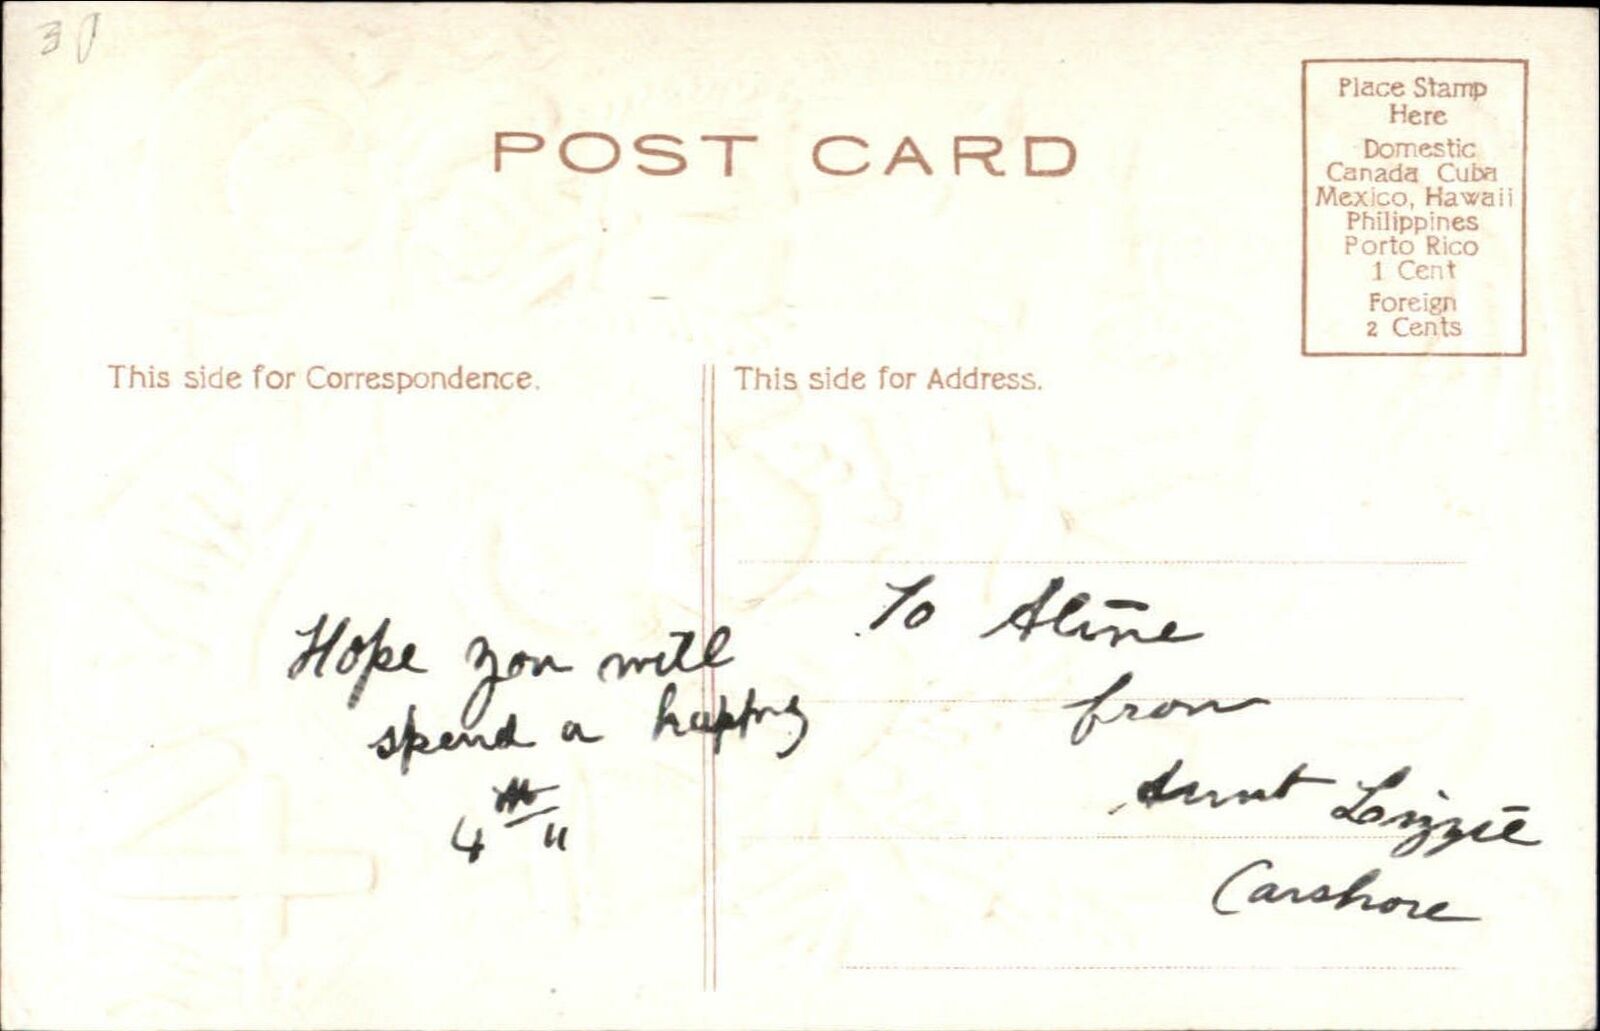 30
POST CARD
Place Stamp
Here
Domestic
Canada Cuba
Mexico, Hawaii
Philippines
Porto Rico
1 Cent
Foreign
2 Cents
This side for Correspondence.
This side for Address.
Hope you will
spend a happy
4th "
To Aline
from
Aunt Lizzie
Carshore